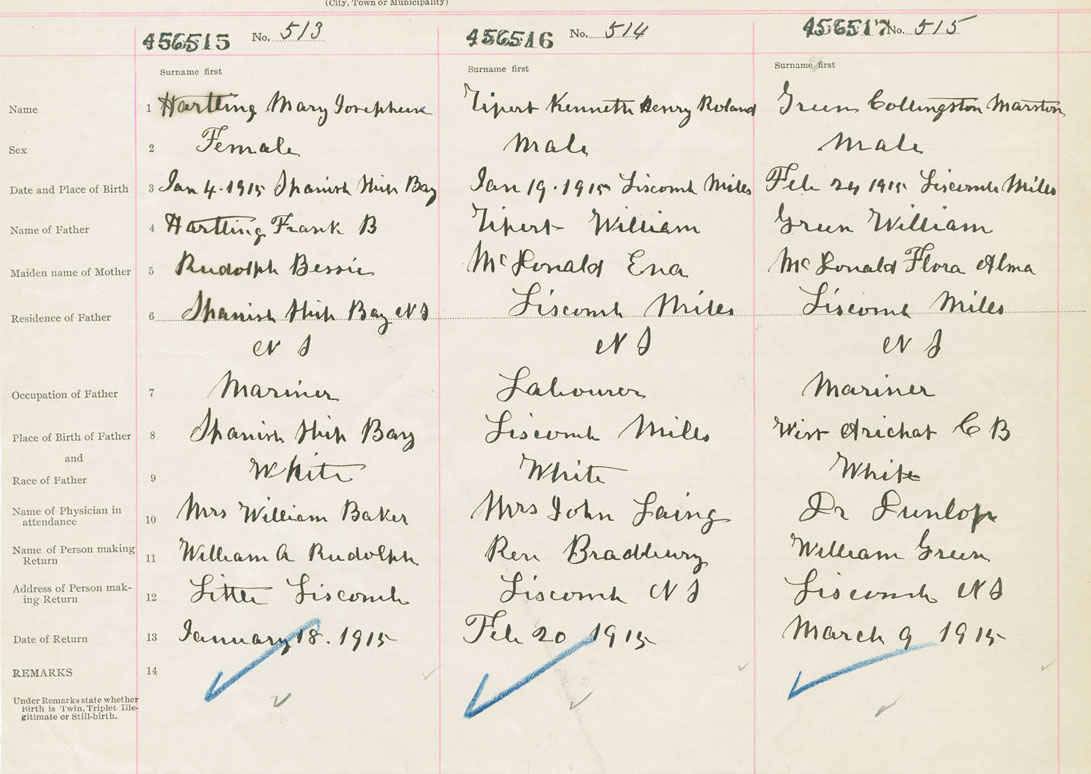 (City, Town or Municipality)
456515 No. 513 456516 No. 514 456517 No. 515
Surname first Surname first Surname first
Name 1 Hartling Mary Josephine Tipert Kenneth Henry Roland Green Collingston Marston
Sex 2 Female Male Male
Date and Place of Birth 3 Jan 4. 1915 Spanish Ship Bay Jan 19. 1915 Liscomb Miles Feb 24 1915 Liscomb Miles
Name of Father 4 Hartling Frank B Tipert William Green William
Maiden name of Mother 5 Rudolph Bessie McDonald Ena McDonald Flora Alma
Residence of Father 6 Spanish Ship Bay NS Liscomb Miles Liscomb Miles
N S N S N S
Occupation of Father 7 Mariner Labourer Mariner
Place of Birth of Father 8 Spanish Ship Bay Liscomb Miles West Arichat C B
and
Race of Father 9 White White White
Name of Physician in
attendance 10 Mrs William Baker Mrs John Laing Dr Dunlop
Name of Person making
Return 11 William A Rudolph Rev Bradbury William Green
Address of Person mak-
ing Return 12 Little Liscomb Liscomb N S Liscomb N S
Date of Return 13 January 18. 1915 Feb 20 1915 March 9 1915
REMARKS 14
Under Remarks state whether
Birth is Twin, Triplet Ille-
gitimate or Still-birth.